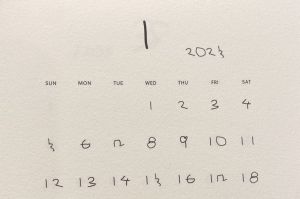 1
2025
SUN MON TUE WED THU FRI SAT
1 2 3 4
5 6 7 8 9 10 11
12 13 14 15 16 17 18